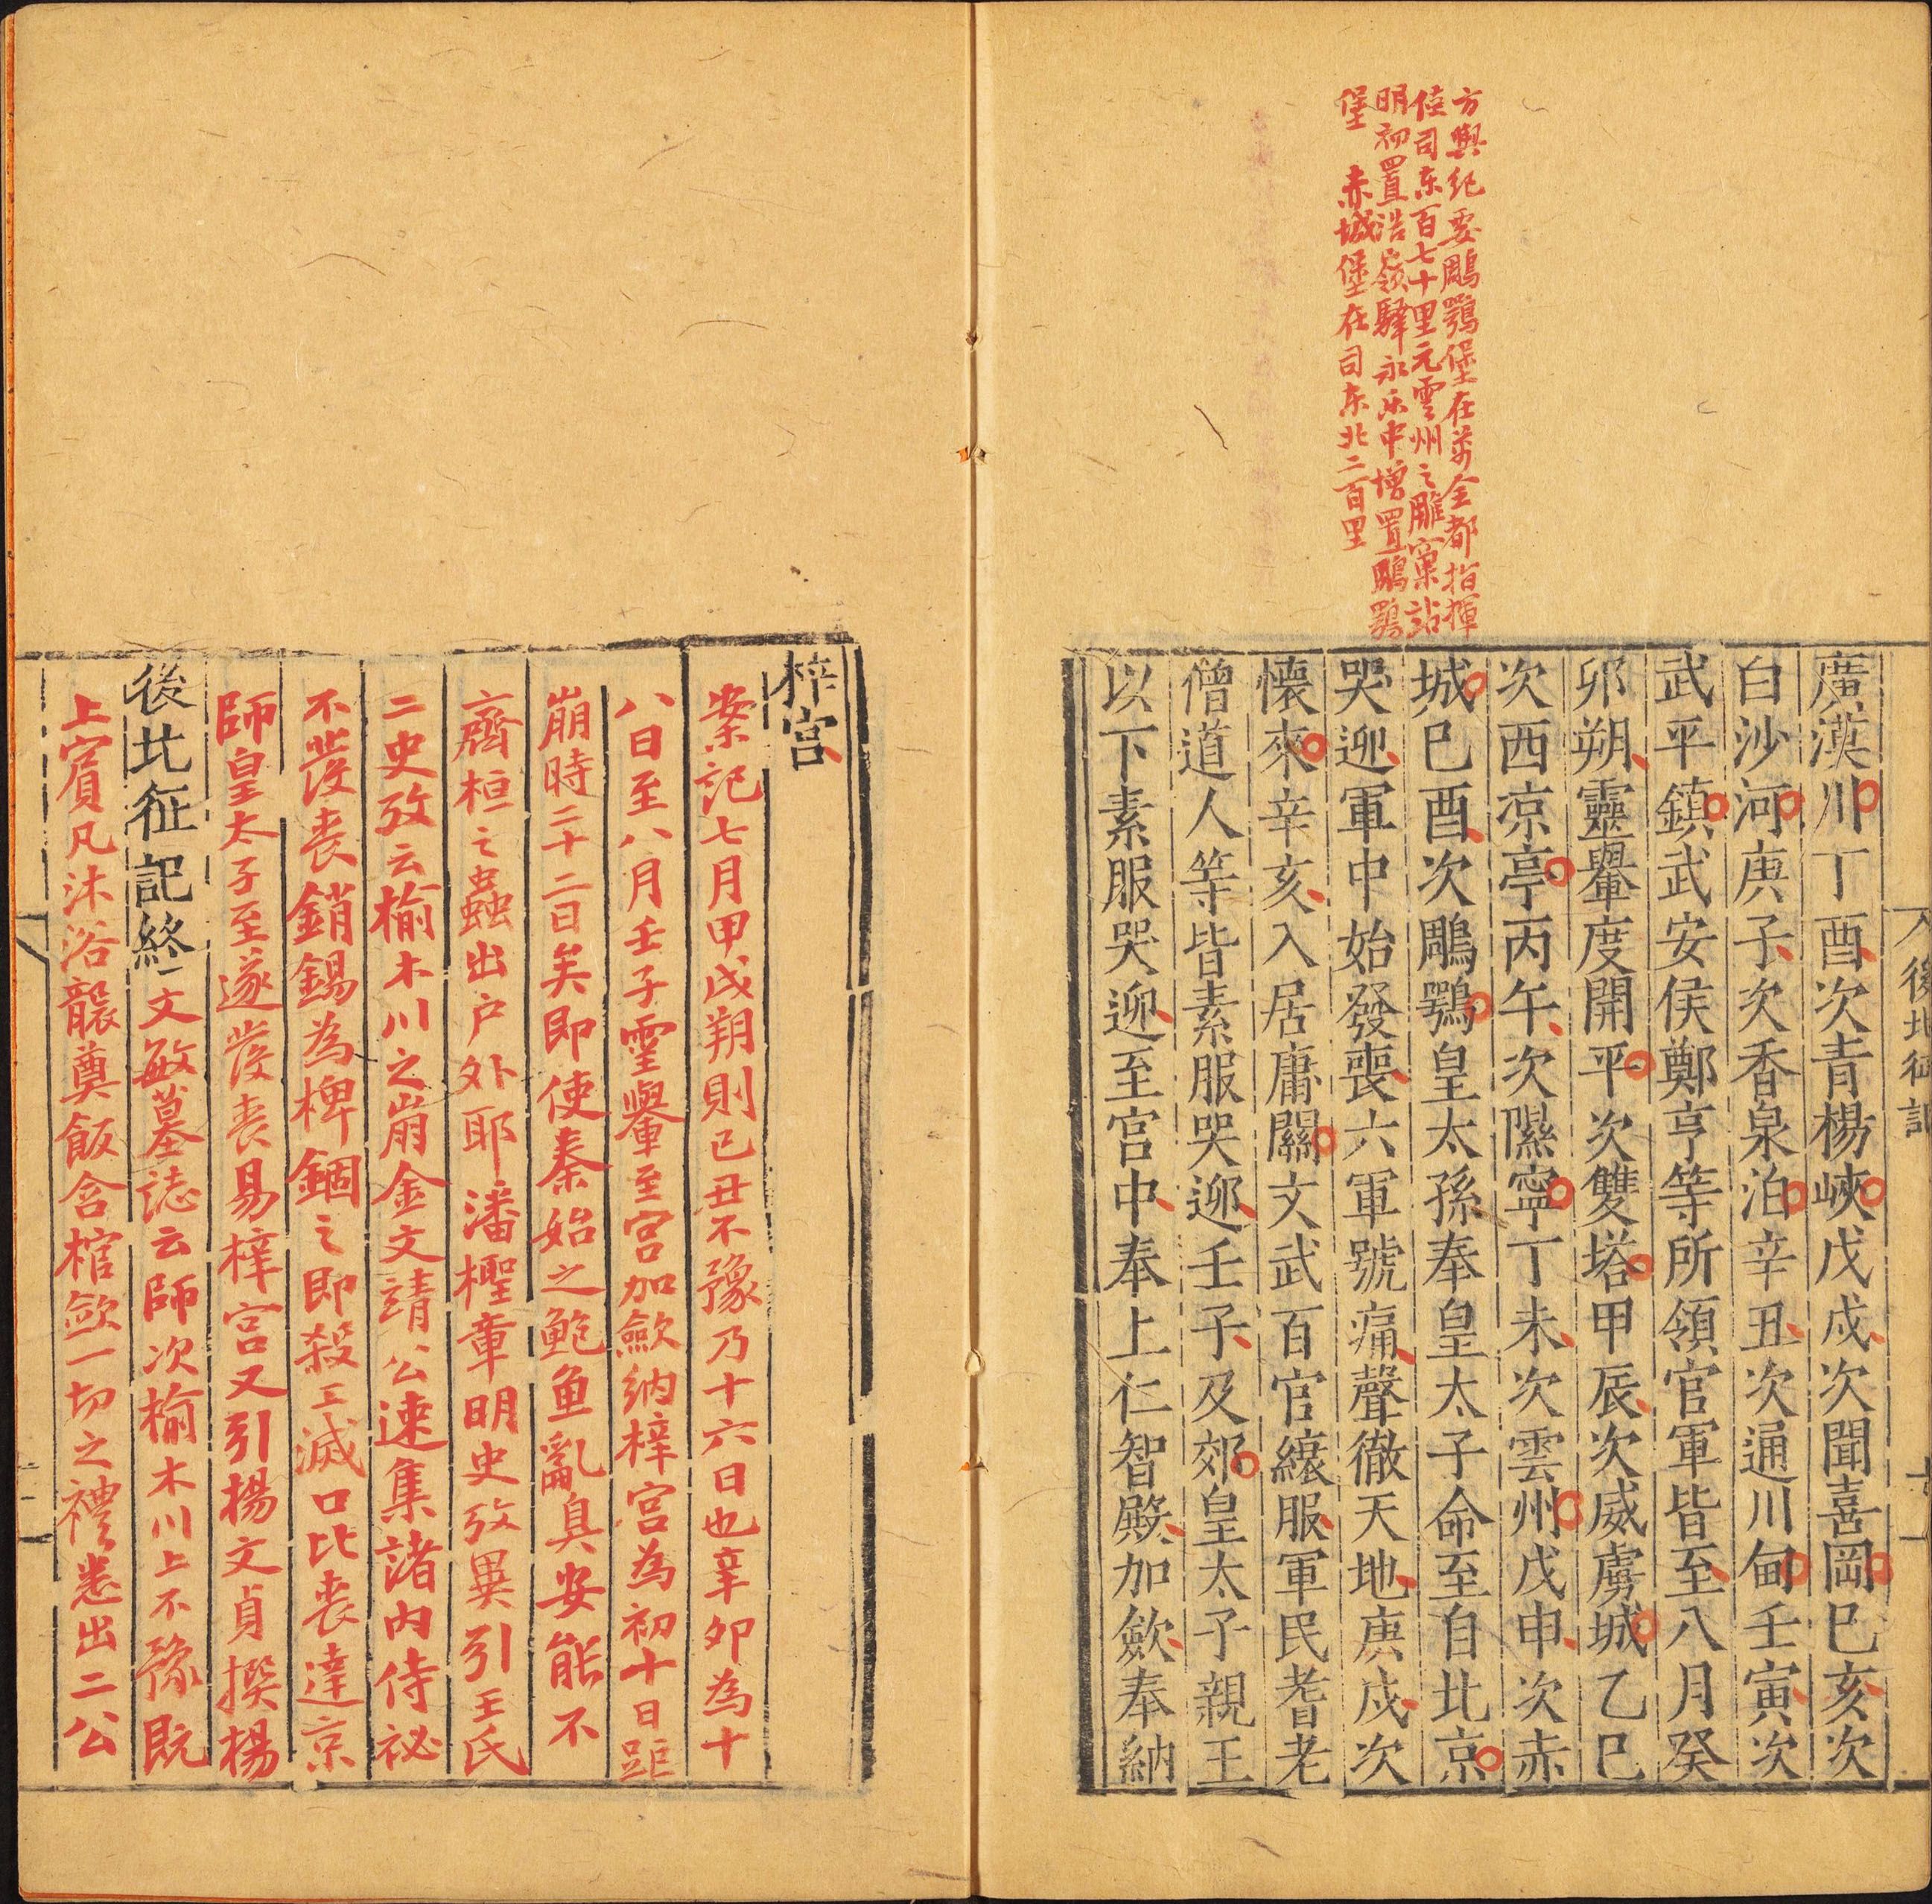 方輿紀要鵰鶚堡在萬全都指揮
使司东百七十里元雲州之雕窠站
明初置浩嶺驛永乐中增置鵰鶚
堡 赤城堡在司东北二百里
廣漠川丁酉次青楊峽戊戌次聞喜岡巳亥次
白沙河庚子次香泉泊辛丑次通川甸壬寅次
武平鎮武安侯鄭亨等所領官軍皆至八月癸
卯朔靈轝度開平次雙塔甲辰次威虜城乙巳
次西凉亭丙午次隰寧丁未次雲州戊申次赤
城巳酉次鵰鶚皇太孫奉皇太子命至自北京
哭迎軍中始發喪六軍號痛聲徹天地庚戌次
懷來辛亥入居庸關文武百官縗服軍民耆老
僧道人等皆素服哭迎壬子及郊皇太子親王
以下素服哭迎至宫中奉上仁智殿加歛奉納
梓宫
案記七月甲戌朔則己丑不豫乃十六日也辛卯為十
八日至八月壬子靈轝至宫加歛納梓宫為初十日距
崩時二十二日矣即使秦始之鮑鱼亂臭安能不
齊桓之蟲出户外耶潘檉章明史攷異引王氏
二史攷云榆木川之崩金文靖公速集諸内侍祕
不發丧銷錫為椑錮之即殺工滅口比丧達京
師皇太子至遂發丧易梓宫又引楊文貞撰楊
後北征記終 文敏墓誌云師次榆木川上不豫既
上賓凡沐浴襲奠飯含棺歛一切之禮悉出二公